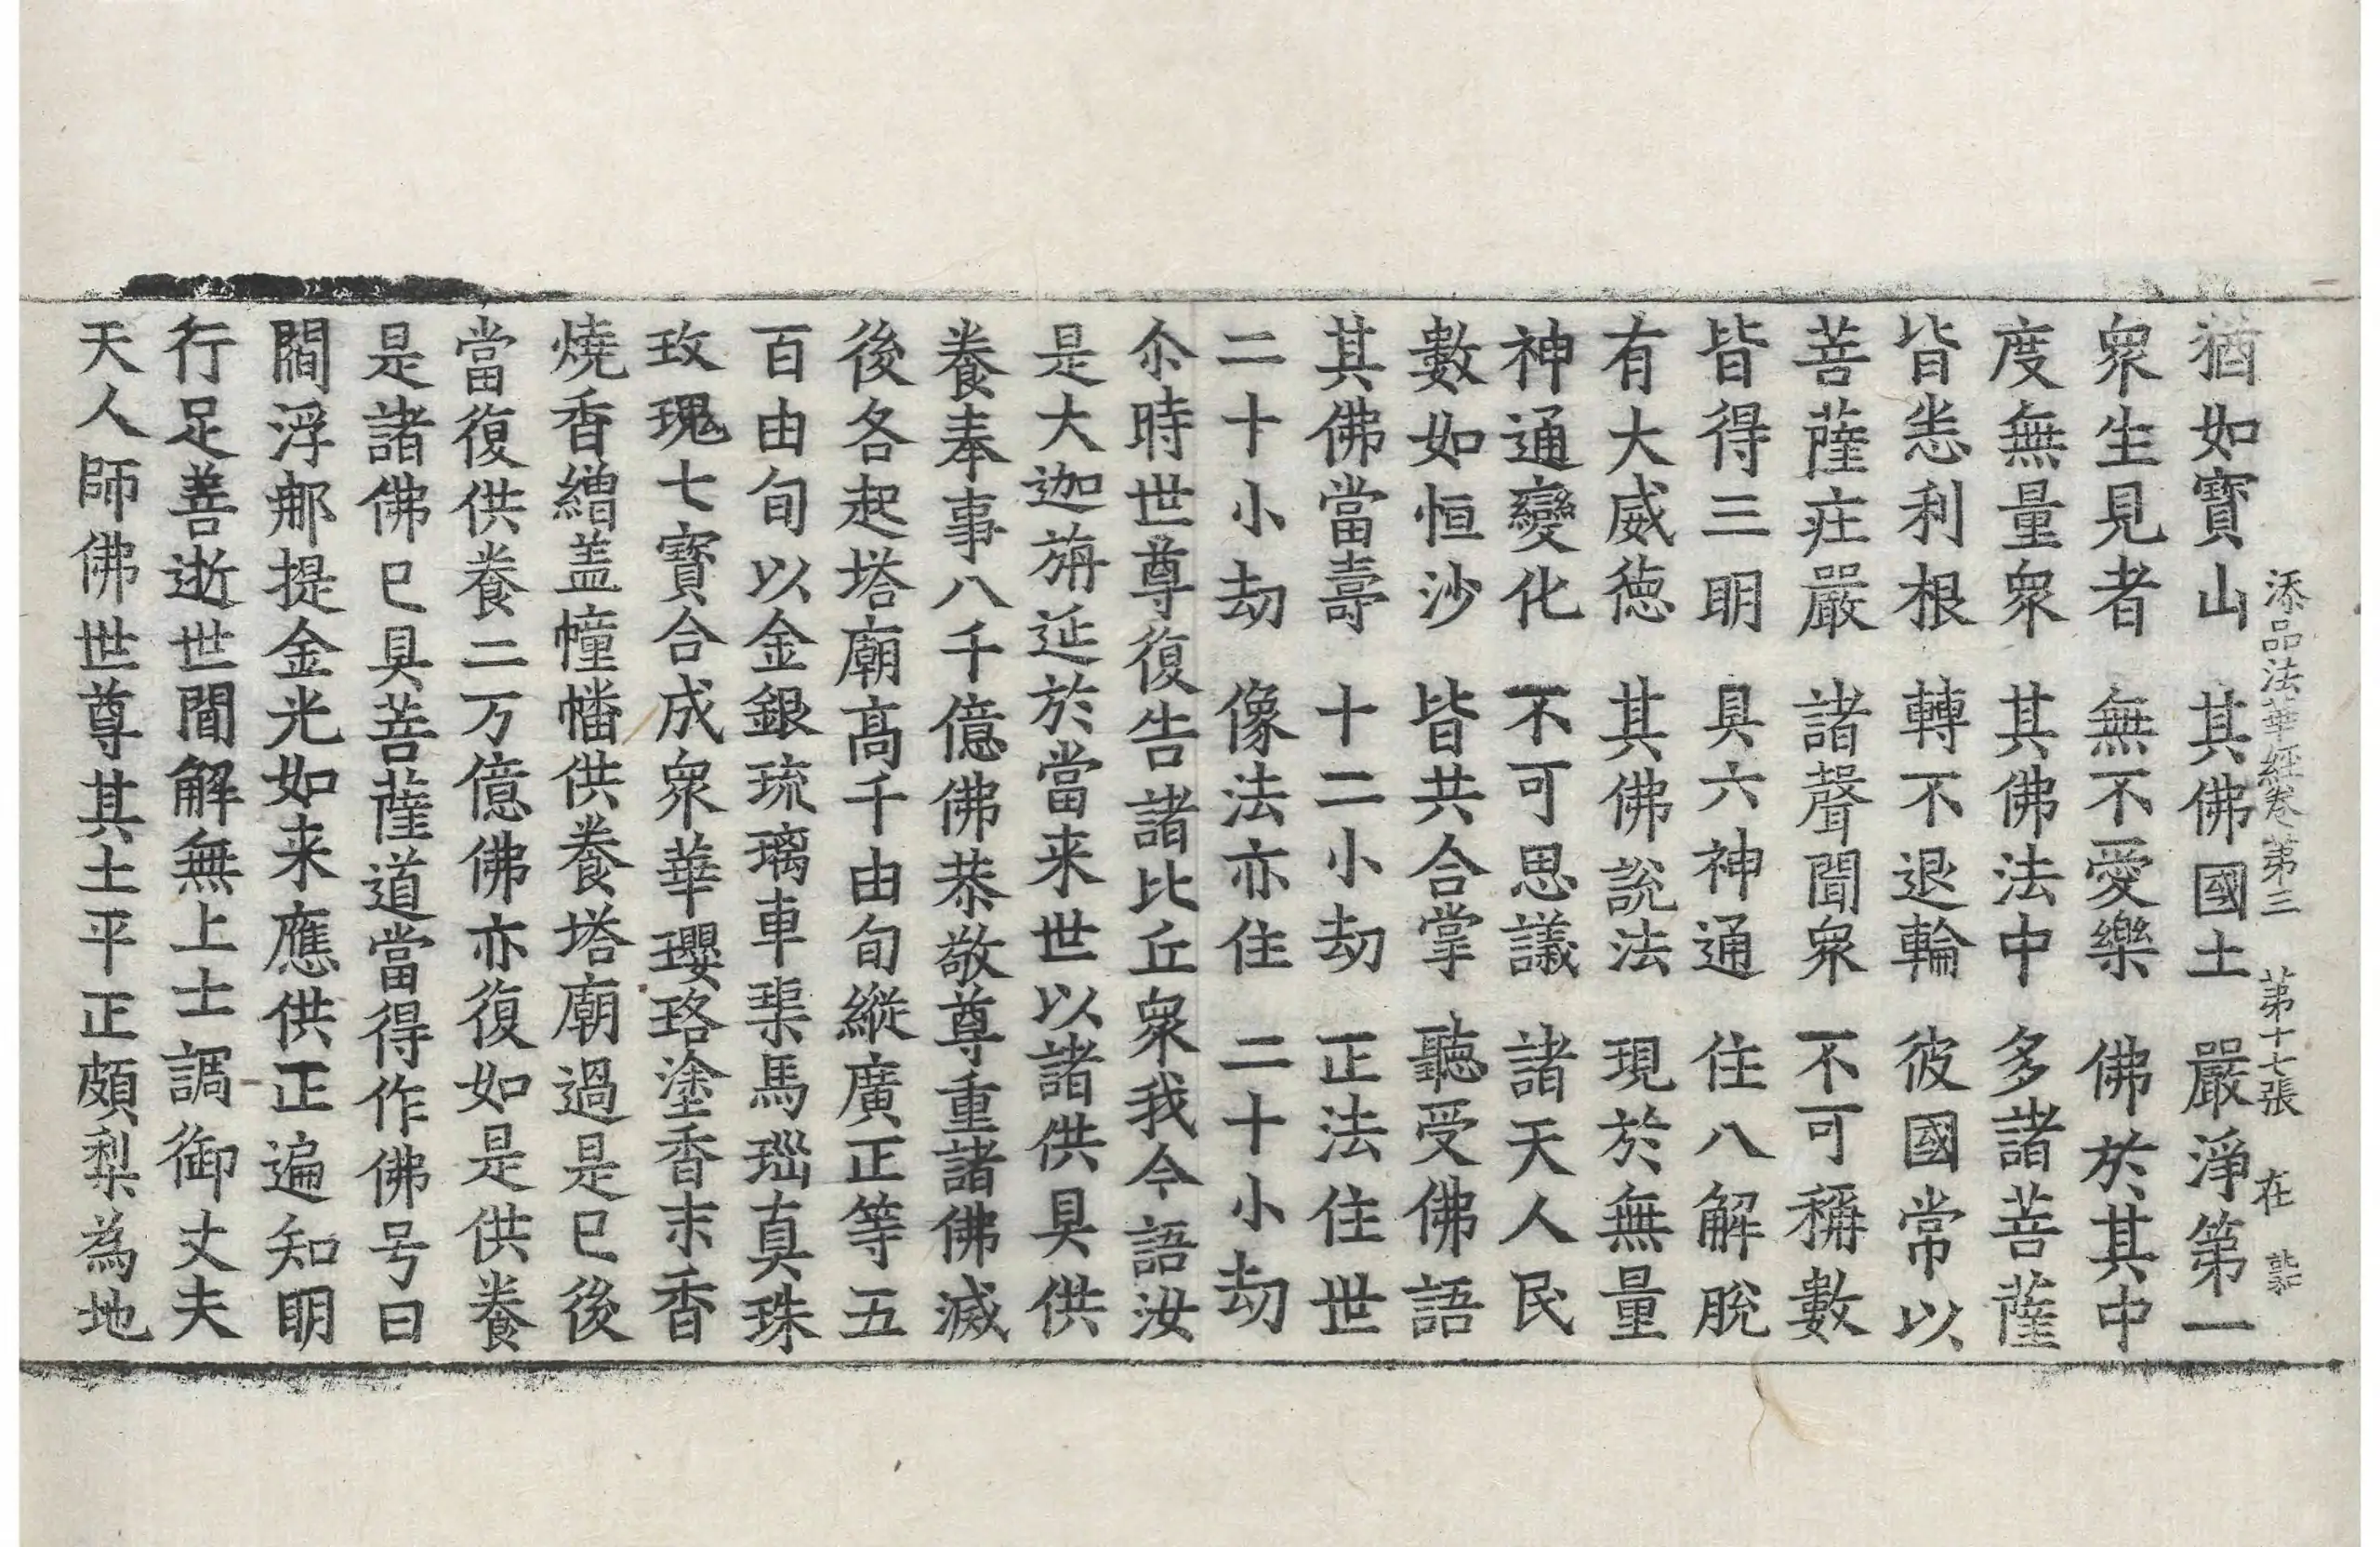 添品法華經卷第三 第十七張 在
猶如寶山 其佛國土 嚴淨第一
衆生見者 無不愛樂 佛於其中
度無量衆 其佛法中 多諸菩薩
皆悉利根 轉不退輪 彼國常以
菩薩莊嚴 諸聲聞衆 不可稱數
皆得三明 具六神通 住八解脫
有大威德 其佛說法 現於無量
神通變化 不可思議 諸天人民
數如恒沙 皆共合掌 聽受佛語
其佛當壽 十二小劫 正法住世
二十小劫 像法亦住 二十小劫
尒時世尊復告諸比丘衆我今語汝
是大迦旃延於當来世以諸供具供
養奉事八千億佛恭敬尊重諸佛滅
後各起塔廟高千由旬縱廣正等五
百由旬以金銀琉璃車𤦲馬瑙真珠
玫瑰七寶合成衆華瓔珞塗香末香
燒香繒盖幢幡供養塔廟過是已後
當復供養二万億佛亦復如是供養
是諸佛已具菩薩道當得作佛号曰
閻浮那提金光如来應供正遍知明
行足善逝世間解無上士調御丈夫
天人師佛世尊其土平正頗梨為地